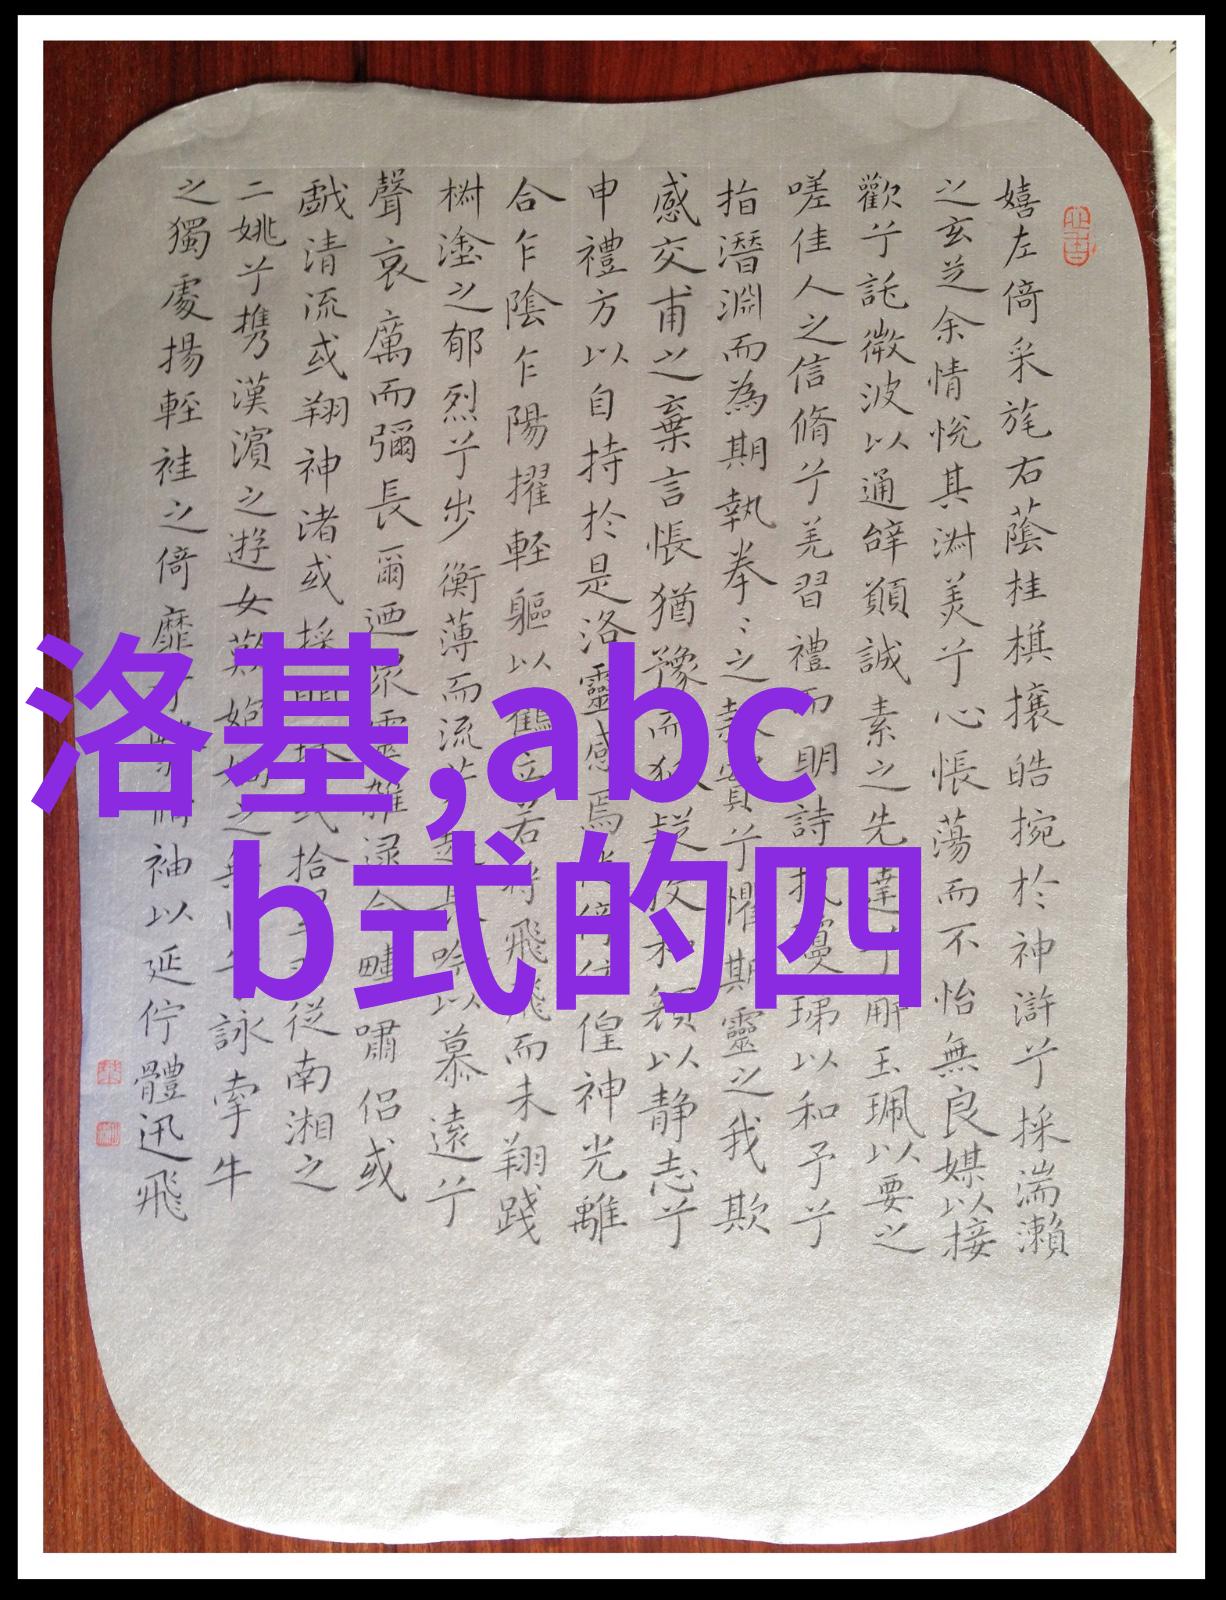 嬉左倚采旄右蔭桂棋攘皓捥於神滸兮採湍瀨
之玄芝余情悅其淑美兮心悵蕩而不怡無良媒以接
歡兮託微波以通辝顚誠素之先達兮解玉珮以要之
嗟佳人之信脩兮羌習禮而明詩瓊珶以和予兮
指潛淵而為期執拳〻之實兮懼期靈之我欺
感交甫之棄言悵猶豫而狐疑收和顏以静志兮
申禮方以自持於是洛靈感焉徙倚彷徨神光離
合乍陰乍陽擢輕軀以鶴立若將飛飛而未翔踐
椒塗之郁烈兮步衡薄而流芳超長吟以慕遠兮
聲哀厲而彌長爾迺眾靈雜沓命疇嘯侶或
戲清流或翔神渚或採明珠或拾翠羽從南湘之
二姚兮携漢濱之遊女歎匏媧之無匹兮詠牽牛
之獨處揚輕袿之倚靡兮脩袖以延佇體迅飛
洛基,abc
b式的四